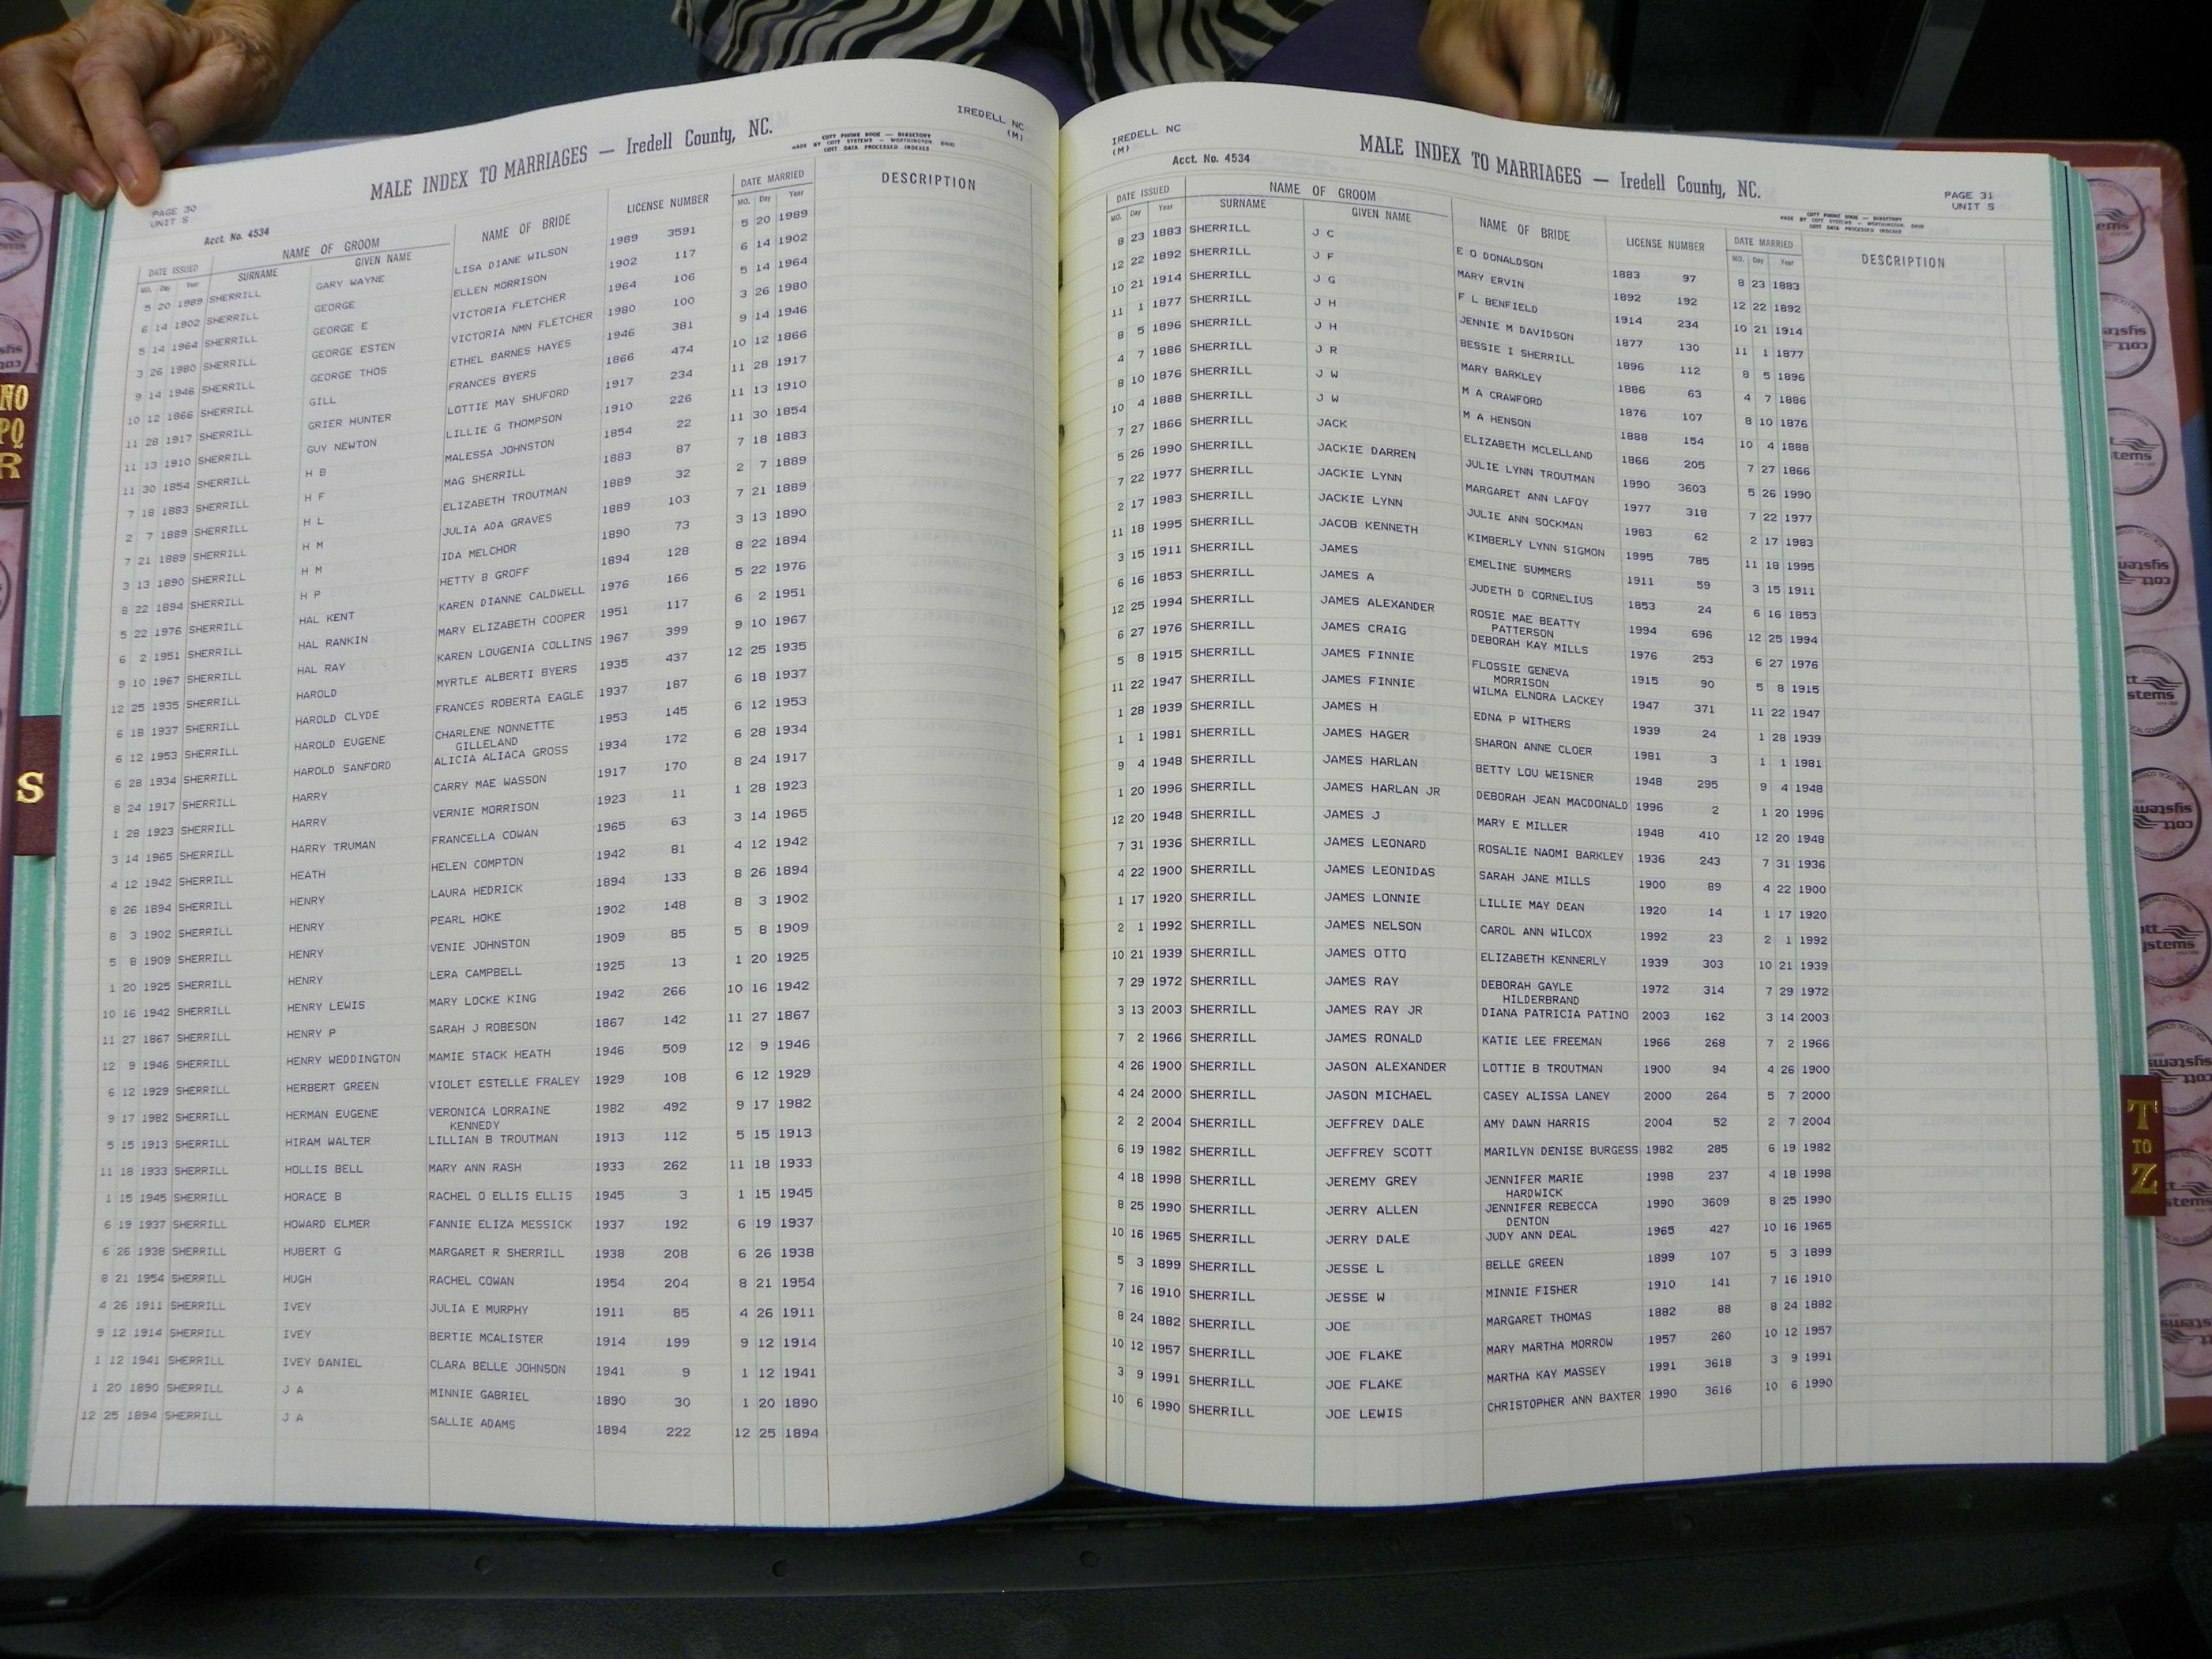 IREDELL NC
(M)
MALE INDEX TO MARRIAGES — Iredell County, NC.
COTT PHONE BOOK — DIRECTORY
MADE BY COTT SYSTEMS — WORTHINGTON OHIO
COTT DATA PROCESSED INDEXES
PAGE 30
UNIT S
Acct. No. 4534
DATE ISSUED NAME OF GROOM NAME OF BRIDE LICENSE NUMBER DATE MARRIED DESCRIPTION
MO. Day Year SURNAME GIVEN NAME MO. Day Year
5 20 1989 SHERRILL GARY WAYNE LISA DIANE WILSON 1989 3591 5 20 1989
6 14 1902 SHERRILL GEORGE ELLEN MORRISON 1902 117 6 14 1902
5 14 1964 SHERRILL GEORGE E VICTORIA FLETCHER 1964 106 5 14 1964
3 26 1980 SHERRILL GEORGE ESTEN VICTORIA NMN FLETCHER 1980 100 3 26 1980
9 14 1946 SHERRILL GEORGE THOS ETHEL BARNES HAYES 1946 381 9 14 1946
10 12 1866 SHERRILL GILL FRANCES BYERS 1866 474 10 12 1866
11 28 1917 SHERRILL GRIER HUNTER LOTTIE MAY SHUFORD 1917 234 11 28 1917
11 13 1910 SHERRILL GUY NEWTON LILLIE G THOMPSON 1910 226 11 13 1910
11 30 1854 SHERRILL H B MALESSA JOHNSTON 1854 22 11 30 1854
7 18 1883 SHERRILL H F MAG SHERRILL 1883 87 7 18 1883
2 7 1889 SHERRILL H L ELIZABETH TROUTMAN 1889 32 2 7 1889
7 21 1889 SHERRILL H M JULIA ADA GRAVES 1889 103 7 21 1889
3 13 1890 SHERRILL H M IDA MELCHOR 1890 73 3 13 1890
8 22 1894 SHERRILL H P HETTY B GROFF 1894 128 8 22 1894
5 22 1976 SHERRILL HAL KENT KAREN DIANNE CALDWELL 1976 166 5 22 1976
6 2 1951 SHERRILL HAL RANKIN MARY ELIZABETH COOPER 1951 117 6 2 1951
9 10 1967 SHERRILL HAL RAY KAREN LOUGENIA COLLINS 1967 399 9 10 1967
12 25 1935 SHERRILL HAROLD MYRTLE ALBERTI BYERS 1935 437 12 25 1935
6 18 1937 SHERRILL HAROLD CLYDE FRANCES ROBERTA EAGLE 1937 187 6 18 1937
6 12 1953 SHERRILL HAROLD EUGENE CHARLENE NONNETTE 1953 145 6 12 1953
GILLELAND
6 28 1934 SHERRILL HAROLD SANFORD ALICIA ALIACA GROSS 1934 172 6 28 1934
8 24 1917 SHERRILL HARRY CARRY MAE WASSON 1917 170 8 24 1917
1 28 1923 SHERRILL HARRY VERNIE MORRISON 1923 11 1 28 1923
3 14 1965 SHERRILL HARRY TRUMAN FRANCELLA COWAN 1965 63 3 14 1965
4 12 1942 SHERRILL HEATH HELEN COMPTON 1942 81 4 12 1942
8 26 1894 SHERRILL HENRY LAURA HEDRICK 1894 133 8 26 1894
8 3 1902 SHERRILL HENRY PEARL HOKE 1902 148 8 3 1902
5 8 1909 SHERRILL HENRY VENIE JOHNSTON 1909 85 5 8 1909
1 20 1925 SHERRILL HENRY LERA CAMPBELL 1925 13 1 20 1925
10 16 1942 SHERRILL HENRY LEWIS MARY LOCKE KING 1942 266 10 16 1942
11 27 1867 SHERRILL HENRY P SARAH J ROBESON 1867 142 11 27 1867
12 9 1946 SHERRILL HENRY WEDDINGTON MAMIE STACK HEATH 1946 509 12 9 1946
6 12 1929 SHERRILL HERBERT GREEN VIOLET ESTELLE FRALEY 1929 108 6 12 1929
9 17 1982 SHERRILL HERMAN EUGENE VERONICA LORRAINE 1982 492 9 17 1982
KENNEDY
5 15 1913 SHERRILL HIRAM WALTER LILLIAN B TROUTMAN 1913 112 5 15 1913
11 18 1933 SHERRILL HOLLIS BELL MARY ANN RASH 1933 262 11 18 1933
1 15 1945 SHERRILL HORACE B RACHEL O ELLIS ELLIS 1945 3 1 15 1945
6 19 1937 SHERRILL HOWARD ELMER FANNIE ELIZA MESSICK 1937 192 6 19 1937
6 26 1938 SHERRILL HUBERT G MARGARET R SHERRILL 1938 208 6 26 1938
8 21 1954 SHERRILL HUGH RACHEL COWAN 1954 204 8 21 1954
4 26 1911 SHERRILL IVEY JULIA E MURPHY 1911 85 4 26 1911
9 12 1914 SHERRILL IVEY BERTIE MCALISTER 1914 199 9 12 1914
1 12 1941 SHERRILL IVEY DANIEL CLARA BELLE JOHNSON 1941 9 1 12 1941
1 20 1890 SHERRILL J A MINNIE GABRIEL 1890 30 1 20 1890
12 25 1894 SHERRILL J A SALLIE ADAMS 1894 222 12 25 1894
IREDELL NC
(M)
MALE INDEX TO MARRIAGES — Iredell County, NC.
Acct. No. 4534
PAGE 31
UNIT S
COTT PHONE BOOK — DIRECTORY
MADE BY COTT SYSTEMS — WORTHINGTON OHIO
COTT DATA PROCESSED INDEXES
DATE ISSUED NAME OF GROOM NAME OF BRIDE LICENSE NUMBER DATE MARRIED DESCRIPTION
MO. Day Year SURNAME GIVEN NAME MO. Day Year
8 23 1883 SHERRILL J C E O DONALDSON 1883 97 8 23 1883
12 22 1892 SHERRILL J F MARY ERVIN 1892 192 12 22 1892
10 21 1914 SHERRILL J G F L BENFIELD 1914 234 10 21 1914
11 1 1877 SHERRILL J H JENNIE M DAVIDSON 1877 130 11 1 1877
8 5 1896 SHERRILL J H BESSIE I SHERRILL 1896 112 8 5 1896
4 7 1886 SHERRILL J R MARY BARKLEY 1886 63 4 7 1886
8 10 1876 SHERRILL J W M A CRAWFORD 1876 107 8 10 1876
10 4 1888 SHERRILL J W M A HENSON 1888 154 10 4 1888
7 27 1866 SHERRILL JACK ELIZABETH MCLELLAND 1866 205 7 27 1866
5 26 1990 SHERRILL JACKIE DARREN JULIE LYNN TROUTMAN 1990 3603 5 26 1990
7 22 1977 SHERRILL JACKIE LYNN MARGARET ANN LAFOY 1977 318 7 22 1977
2 17 1983 SHERRILL JACKIE LYNN JULIE ANN SOCKMAN 1983 62 2 17 1983
11 18 1995 SHERRILL JACOB KENNETH KIMBERLY LYNN SIGMON 1995 785 11 18 1995
3 15 1911 SHERRILL JAMES EMELINE SUMMERS 1911 59 3 15 1911
6 16 1853 SHERRILL JAMES A JUDETH D CORNELIUS 1853 24 6 16 1853
12 25 1994 SHERRILL JAMES ALEXANDER ROSIE MAE BEATTY 1994 696 12 25 1994
PATTERSON
6 27 1976 SHERRILL JAMES CRAIG DEBORAH KAY MILLS 1976 253 6 27 1976
5 8 1915 SHERRILL JAMES FINNIE FLOSSIE GENEVA 1915 90 5 8 1915
MORRISON
11 22 1947 SHERRILL JAMES FINNIE WILMA ELNORA LACKEY 1947 371 11 22 1947
1 28 1939 SHERRILL JAMES H EDNA P WITHERS 1939 24 1 28 1939
1 1 1981 SHERRILL JAMES HAGER SHARON ANNE CLOER 1981 3 1 1 1981
9 4 1948 SHERRILL JAMES HARLAN BETTY LOU WEISNER 1948 295 9 4 1948
1 20 1996 SHERRILL JAMES HARLAN JR DEBORAH JEAN MACDONALD 1996 2 1 20 1996
12 20 1948 SHERRILL JAMES J MARY E MILLER 1948 410 12 20 1948
7 31 1936 SHERRILL JAMES LEONARD ROSALIE NAOMI BARKLEY 1936 243 7 31 1936
4 22 1900 SHERRILL JAMES LEONIDAS SARAH JANE MILLS 1900 89 4 22 1900
1 17 1920 SHERRILL JAMES LONNIE LILLIE MAY DEAN 1920 14 1 17 1920
2 1 1992 SHERRILL JAMES NELSON CAROL ANN WILCOX 1992 23 2 1 1992
10 21 1939 SHERRILL JAMES OTTO ELIZABETH KENNERLY 1939 303 10 21 1939
7 29 1972 SHERRILL JAMES RAY DEBORAH GAYLE 1972 314 7 29 1972
HILDERBRAND
3 13 2003 SHERRILL JAMES RAY JR DIANA PATRICIA PATINO 2003 162 3 14 2003
7 2 1966 SHERRILL JAMES RONALD KATIE LEE FREEMAN 1966 268 7 2 1966
4 26 1900 SHERRILL JASON ALEXANDER LOTTIE B TROUTMAN 1900 94 4 26 1900
4 24 2000 SHERRILL JASON MICHAEL CASEY ALISSA LANEY 2000 264 5 7 2000
2 2 2004 SHERRILL JEFFREY DALE AMY DAWN HARRIS 2004 52 2 7 2004
6 19 1982 SHERRILL JEFFREY SCOTT MARILYN DENISE BURGESS 1982 285 6 19 1982
4 18 1998 SHERRILL JEREMY GREY JENNIFER MARIE 1998 237 4 18 1998
HARDWICK
8 25 1990 SHERRILL JERRY ALLEN JENNIFER REBECCA 1990 3609 8 25 1990
DENTON
10 16 1965 SHERRILL JERRY DALE JUDY ANN DEAL 1965 427 10 16 1965
5 3 1899 SHERRILL JESSE L BELLE GREEN 1899 107 5 3 1899
7 16 1910 SHERRILL JESSE W MINNIE FISHER 1910 141 7 16 1910
8 24 1882 SHERRILL JOE MARGARET THOMAS 1882 88 8 24 1882
10 12 1957 SHERRILL JOE FLAKE MARY MARTHA MORROW 1957 260 10 12 1957
3 9 1991 SHERRILL JOE FLAKE MARTHA KAY MASSEY 1991 3618 3 9 1991
10 6 1990 SHERRILL JOE LEWIS CHRISTOPHER ANN BAXTER 1990 3616 10 6 1990
NO
PQ
R
S
T
TO
Z